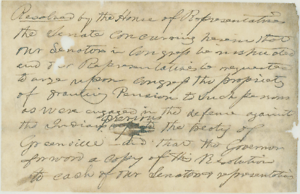 Resolved by the House of Representatives
the Senate Concurring herein that
our Senators in Congress be instructed
and our Representatives requested
to urge upon Congress the propriety
of granting Pension to such persons
as were engaged in the defense against
the Indians previous to the treaty of
Greenville and that the Governor
forward a Copy of this Resolution
to each of our Senators & representatives